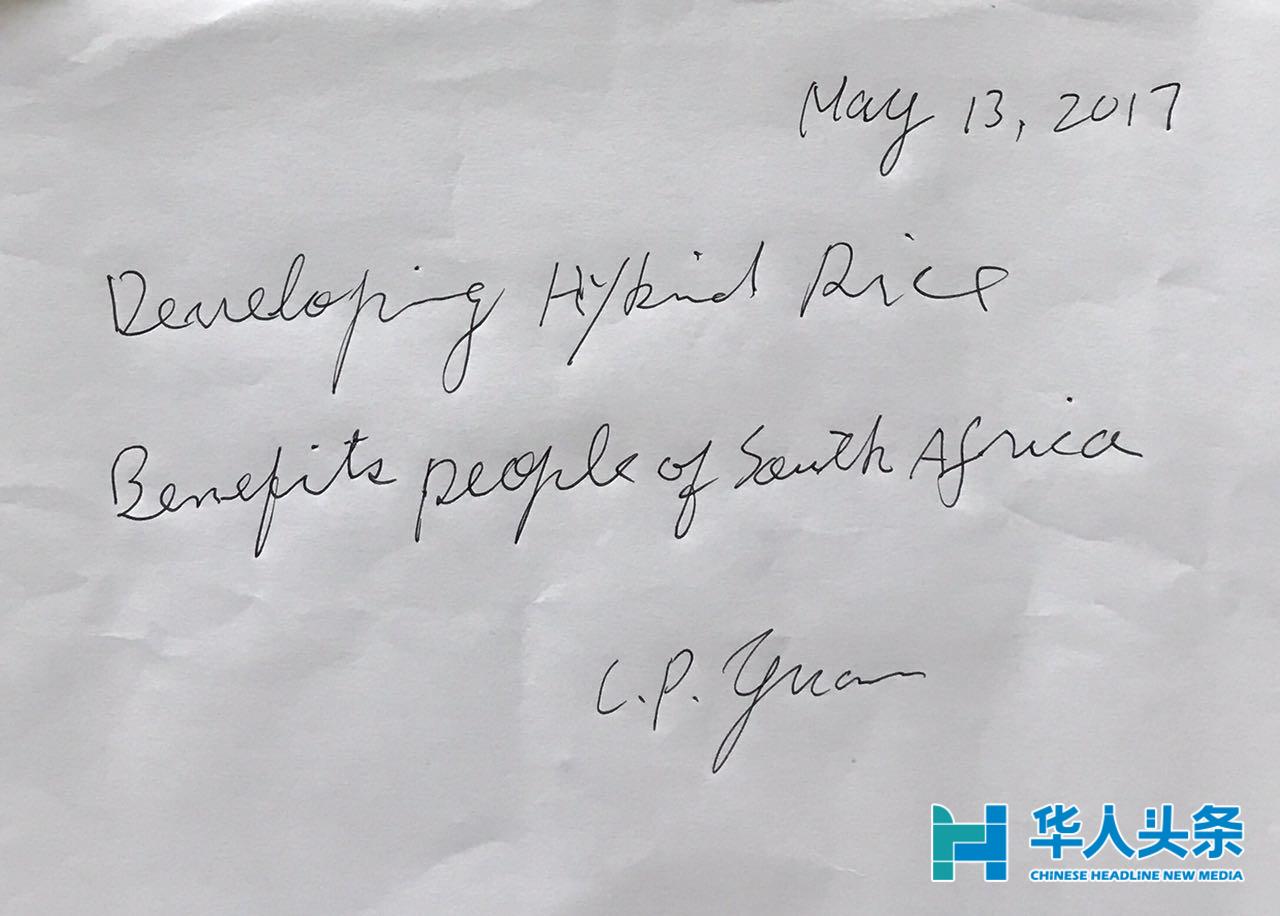 May 13, 2017
Developing Hybrid Rice
Benefits people of South Africa
L.P. Yuan
华人头条
CHINESE HEADLINE NEW MEDIA